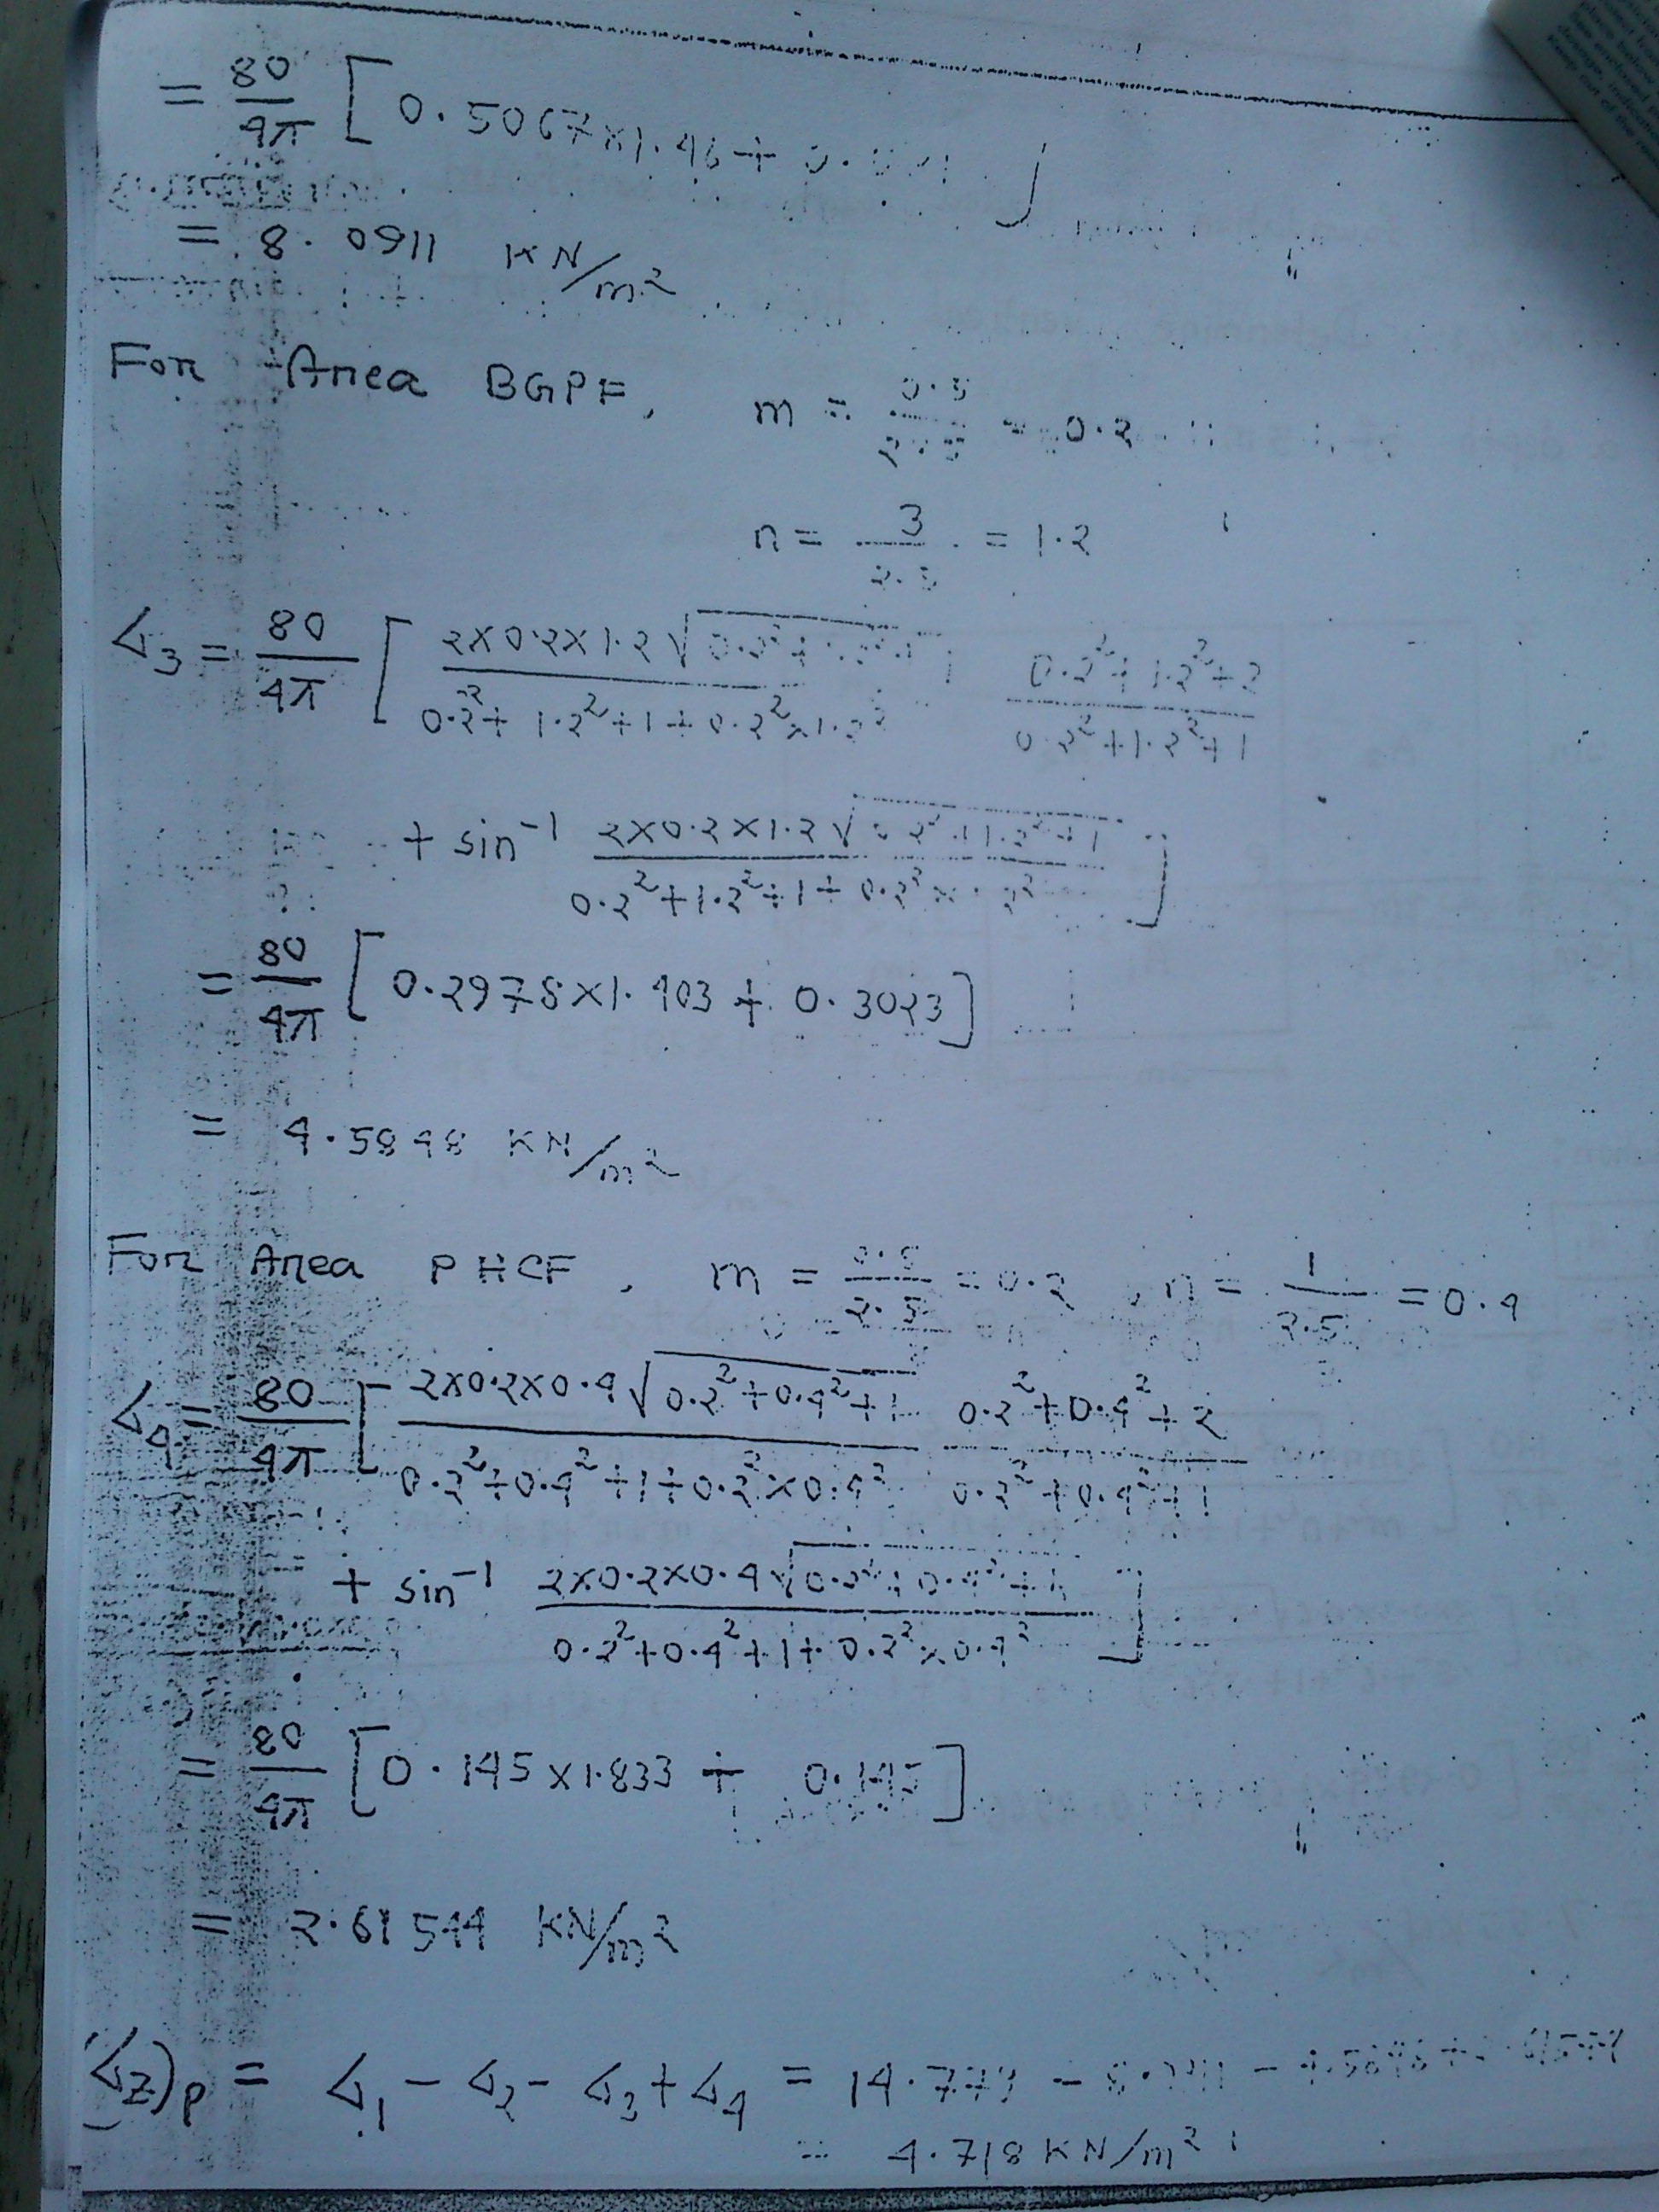 = 80/4π [ 0.5067×1.46 +
= 8.0911 KN/m²
For Area BGPF, m = 0.5/2.5 = 0.2
n = 3/2.5 = 1.2
σ3 = 80/4π [ 2×0.2×1.2√0.2²+1.2²+1 / 0.2²+1.2²+1+0.2²×1.2² 0.2²+1.2²+2 / 0.2²+1.2²+1
+ sin⁻¹ 2×0.2×1.2√0.2²+1.2²+1 / 0.2²+1.2²+1+0.2²×1.2² ]
= 80/4π [ 0.2978×1.403 + 0.3023 ]
= 4.5848 KN/m²
For Area PHCF, m = 0.5/2.5 = 0.2, n = 1/2.5 = 0.4
σ4 = 80/4π [ 2×0.2×0.4√0.2²+0.4²+1 / 0.2²+0.4²+1+0.2²×0.4² 0.2²+0.4²+2 / 0.2²+0.4²+1
+ sin⁻¹ 2×0.2×0.4√0.2²+0.4²+1 / 0.2²+0.4²+1+0.2²×0.4² ]
= 80/4π [ 0.145×1.833 + 0.145 ]
= 2.61544 KN/m²
(σz)p = σ1 - σ2 - σ3 + σ4 = 14.779 - 8.0911 - 4.5848 + 2.61544
= 4.718 KN/m²